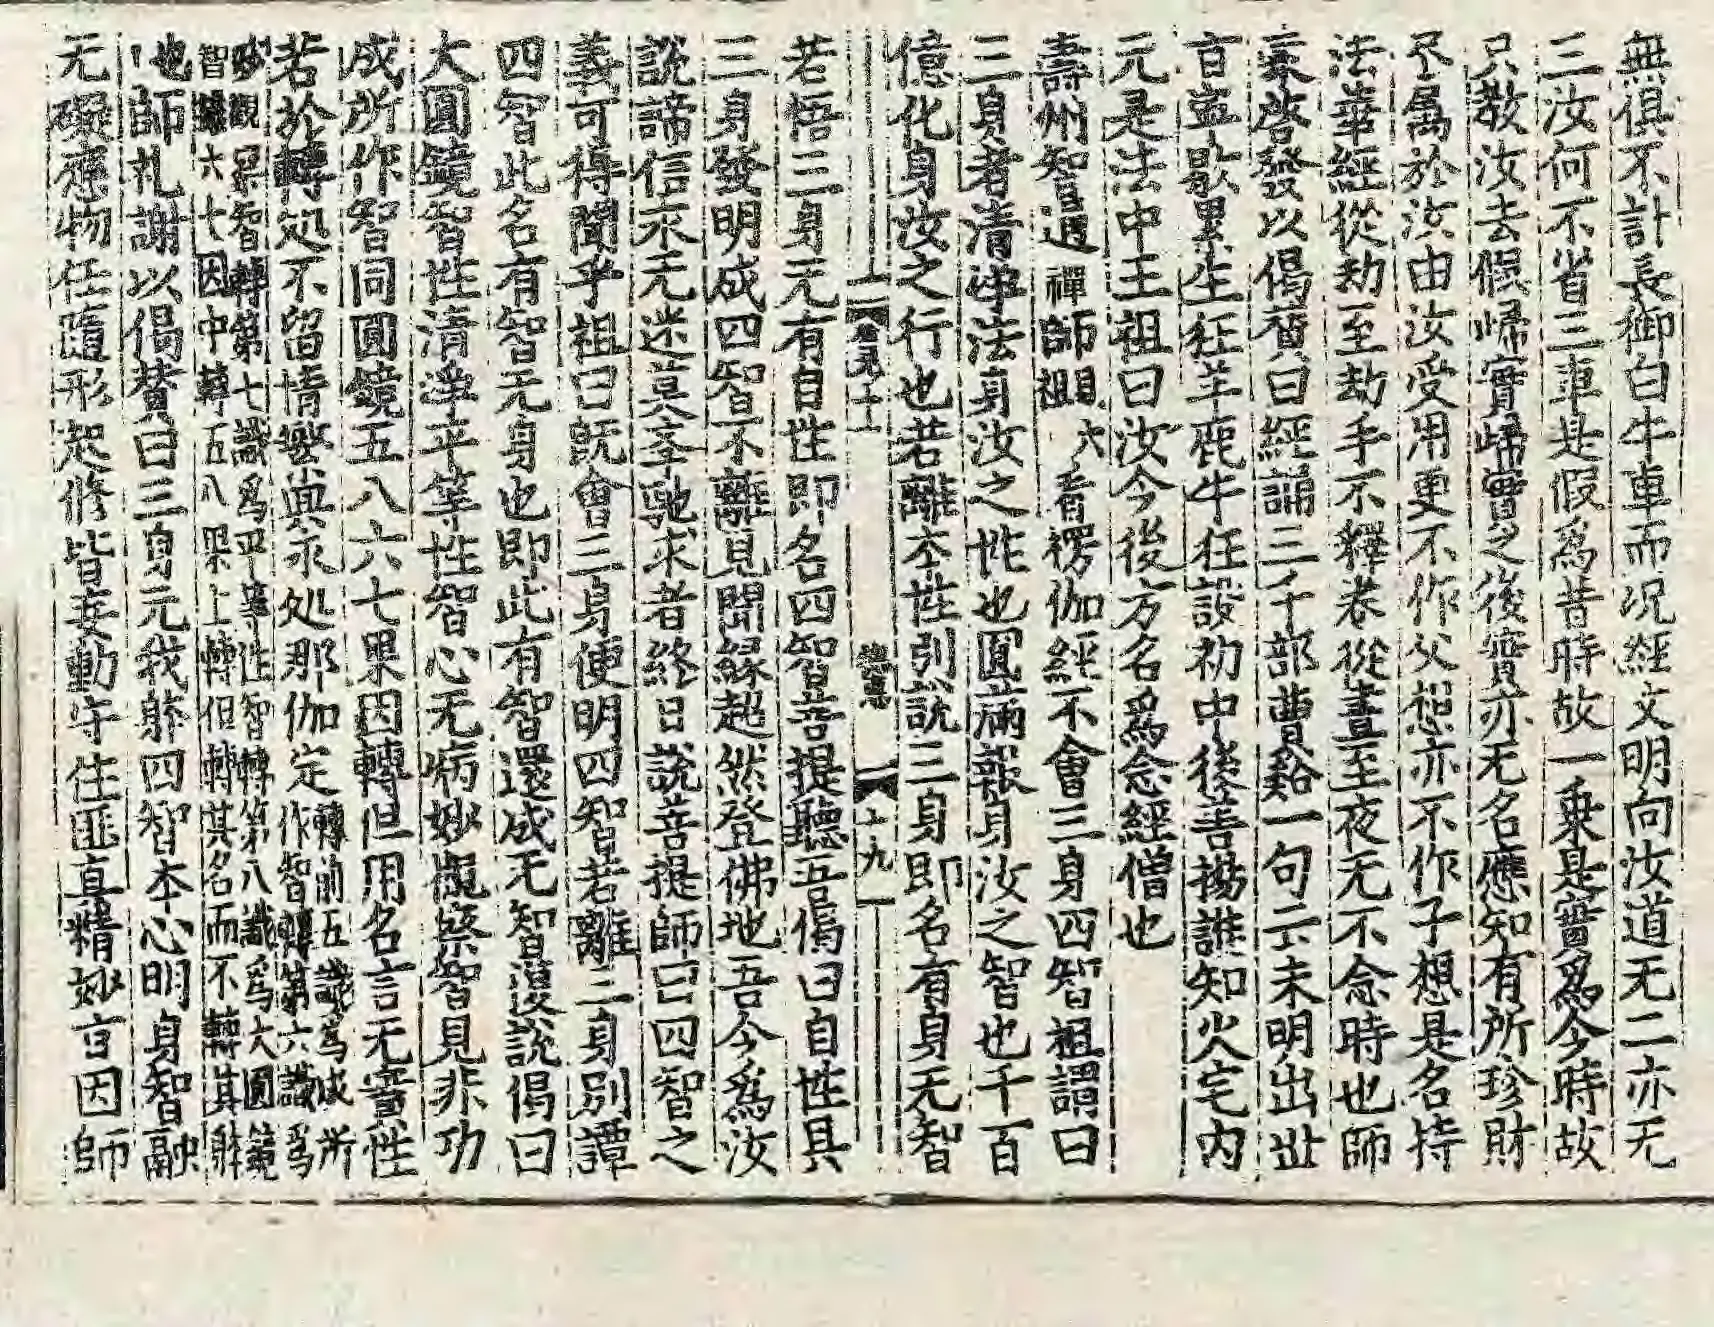 無俱不計長御白牛車而况經文明向汝道无二亦无
三汝何不省三車是假爲昔時故一乗是實爲今時故
只教汝去假歸實歸實之後實亦无名應知有所珎財
尽属於汝由汝受用更不作父想亦不作子想是名持
法華經從劫至劫手不釋卷從晝至夜无不念時也師
蒙啓發以偈賛曰經誦三千部曹谿一句亡未明出世
旨寧歇累生狂羊鹿牛任設初中後善揚誰知火宅内
元是法中王祖曰汝今後方名爲念經僧也
壽州智通禪師祖六看楞伽經不會三身四智祖謂曰
三身者清淨法身汝之性也圓滿報身汝之智也千百
億化身汝之行也若離本性別說三身即名有身无智
十九
若悟三身无有自性即名四智菩提聽吾偈曰自性具
三身發明成四智不離見聞緣超然登佛地吾今爲汝
說諦信永无迷莫斈馳求者終日說菩提師曰四智之
義可得聞乎祖曰旣會三身便明四智若離三身別譚
四智此名有智无身也即此有智還成无智復說偈曰
大圓鏡智性清淨平等性智心无病妙觀察智見非功
成所作智同圓鏡五八六七果因轉但用名言无實性
若於轉処不留情繁興永処那伽定轉前五識爲成所
作智轉第六識爲
妙觀察智轉第七識爲平等性智轉第八識爲大圓鏡
智雖六七因中轉五八果上轉但轉其名而不轉其躰
也師礼謝以偈賛曰三身元我躰四智本心明身智融
无礙應物任隨形起修皆妄動守住匪真精妙言因師